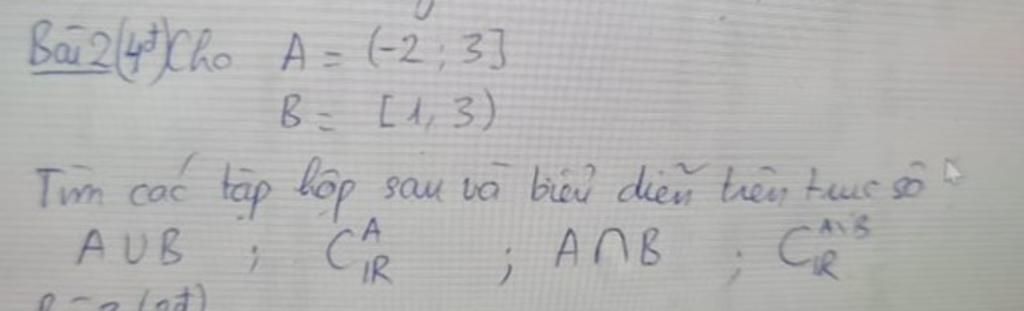 Bài 2 (4đ) Cho A = (-2; 3]
B = [1, 3)
Tìm các tập hợp sau và biểu diễn trên trục số
A∪B ; C_ℝ^A ; A∩B ; C_ℝ^{A\B}